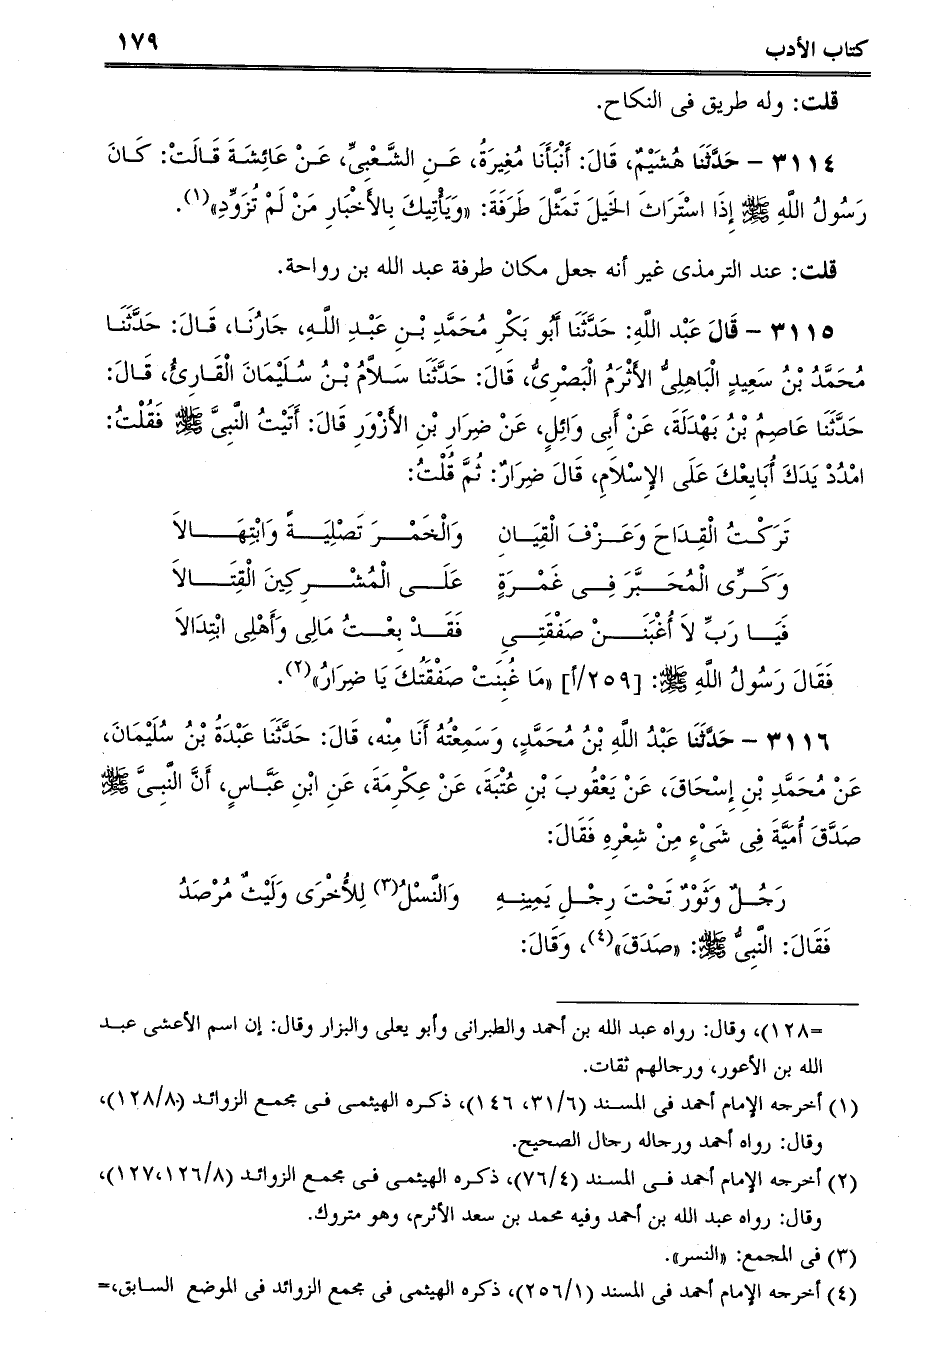 كتاب الأدب ١٧٩
قلت: وله طريق فى النكاح.
٣١١٤ – حَدَّثَنَا هُشَيْمٌ، قَالَ: أَنْبَأَنَا مُغِيرَةُ، عَنِ الشَّعْبِىِّ، عَنْ عَائِشَةَ قَالَتْ: كَانَ
رَسُولُ اللَّهِ ﷺ إِذَا اسْتَرَاثَ الْخَيلَ تَمَثَّلَ طَرَفَةَ: «وَيَأْتِيكَ بِالأَخْبَارِ مَنْ لَمْ تُزَوِّدِ»(١).
قلت: عند الترمذى غير أنه جعل مكان طرفة عبد الله بن رواحة.
٣١١٥ – قَالَ عَبْد اللَّهِ: حَدَّثَنَا أَبُو بَكْرٍ مُحَمَّدُ بْنِ عَبْدِ اللَّهِ، جَارُنَا، قَالَ: حَدَّثَنَا
مُحَمَّدُ بْنُ سَعِيدٍ الْبَاهِلِىُّ الأَثْرَمُ الْبَصْرِىُّ، قَالَ: حَدَّثَنَا سَلاَّمُ بْنُ سُلَيْمَانَ الْقَارِئُ، قَالَ:
حَدَّثَنَا عَاصِمُ بْنُ بَهْدَلَةَ، عَنْ أَبِى وَائِلٍ، عَنْ ضِرَارِ بْنِ الأَزْوَرِ قَالَ: أَتَيْتُ النَّبِىَّ ﷺ فَقُلْتُ:
امْدُدْ يَدَكَ أُبَايِعْكَ عَلَى الإِسْلاَمِ، قَالَ ضِرَارٌ: ثُمَّ قُلْتُ:
تَرَكْتُ الْقِدَاحَ وَعَزْفَ الْقِيَانِ وَالْخَمْرَ تَصْلِيَةً وَابْتِهَالاَ
وَكَرِّى الْمُحَبَّرَ فِى غَمْرَةٍ عَلَى الْمُشْرِكِينَ الْقِتَالاَ
فَيَا رَبِّ لاَ أُغْبَنَنْ صَفْقَتِى فَقَدْ بِعْتُ مَالِى وَأَهْلِى ابْتِدَالاَ
فَقَالَ رَسُولُ اللَّهِ ﷺ: [٢٥٩/أ] «مَا غُبِنَتْ صَفْقَتُكَ يَا ضِرَارُ»(٢).
٣١١٦ – حَدَّثَنَا عَبْدُ اللَّهِ بْنُ مُحَمَّدٍ، وَسَمِعْتُهُ أَنَا مِنْه، قَالَ: حَدَّثَنَا عَبْدَةُ بْنُ سُلَيْمَانَ،
عَنْ مُحَمَّدِ بْنِ إِسْحَاقَ، عَنْ يَعْقُوبَ بْنِ عُتْبَةَ، عَنْ عِكْرِمَةَ، عَنِ ابْنِ عَبَّاسٍ، أَنَّ النَّبِىَّ ﷺ
صَدَّقَ أُمَيَّةَ فِى شَىْءٍ مِنْ شِعْرِهِ فَقَالَ:
رَجُلٌ وَثَوْرٌ تَحْتَ رِجْلِ يَمِينِهِ وَالنَّسْلُ(٣) لِلأُخْرَى وَلَيْثٌ مُرْصَدُ
فَقَالَ: النَّبِىُّ ﷺ: «صَدَقَ»(٤)، وَقَالَ:
=١٢٨)، وقال: رواه عبد الله بن أحمد والطبرانى وأبو يعلى والبزار وقال: إن اسم الأعشى عبد
الله بن الأعور، ورجالهم ثقات.
(١) أخرجه الإمام أحمد فى المسند (٣١/٦، ١٤٦)، ذكره الهيثمى فى مجمع الزوائد (١٢٨/٨)،
وقال: رواه أحمد ورجاله رجال الصحيح.
(٢) أخرجه الإمام أحمد فى المسند (٧٦/٤)، ذكره الهيثمى فى مجمع الزوائد (١٢٧،١٢٦/٨)،
وقال: رواه عبد الله بن أحمد وفيه محمد بن سعد الأثرم، وهو متروك.
(٣) فى المجمع: «النسر».
(٤) أخرجه الإمام أحمد فى المسند (٢٥٦/١)، ذكره الهيثمى فى مجمع الزوائد فى الموضع السابق،=